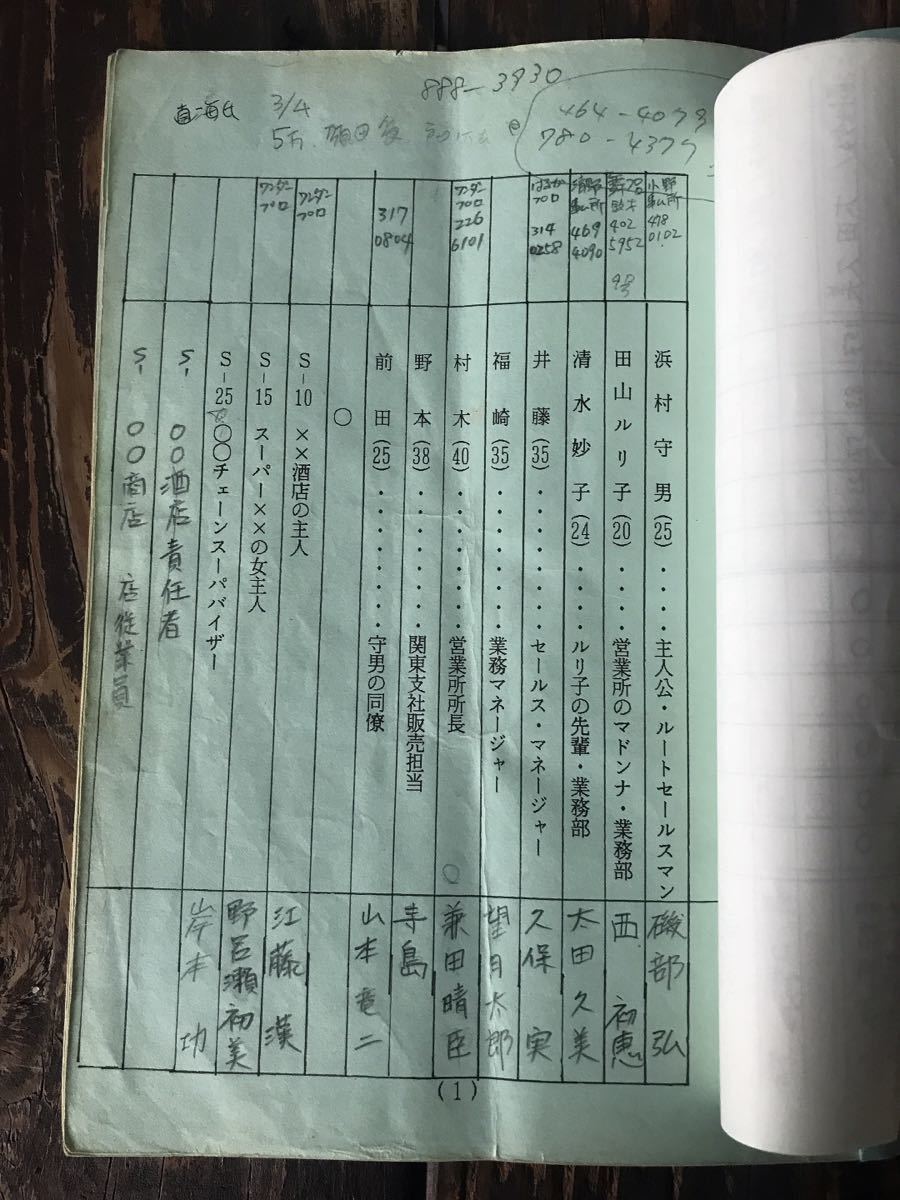 3/4
888-3930
464-4079
780-4379
小野
事ム所
478
0102
浜村守男(25)・・・・主人公・ルートセールスマン
磯部 弘
402
5952
田山ルリ子(20)・・・・営業所のマドンナ・業務部
西 初恵
清野
事ム所
469
4090
清水妙子(24)・・・・ルリ子の先輩・業務部
太田久美
はるか
プロ
314
0258
井藤(35)・・・・・・・・セールス・マネージャー
久保 実
福崎(35)・・・・・・・・業務マネージャー
望月太郎
ワンダー
プロ
226
6101
村木(40)・・・・・・・・営業所所長
○
兼田晴臣
野本(38)・・・・・・・・関東支社販売担当
寺島
317
0804
前田(25)・・・・・・・・守男の同僚
山本竜二
○
ワンダー
プロ
S-10 ××酒店の主人
ワンダー
プロ
S-15 スーパー××の女主人
江藤 漢
S-25 ○○チェーンスーパバイザー
野呂瀬初美
S- ○○酒店責任者
岸本 功
S- ○○商店 店従業員
(1)